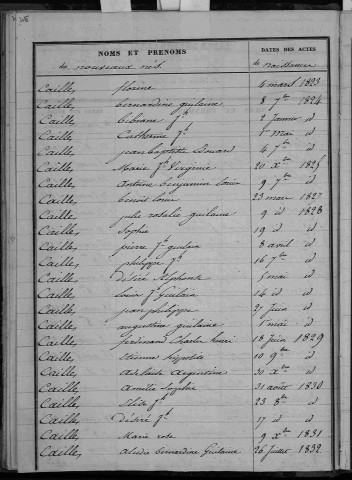 NOMS ET PRENOMS DATES DES ACTES
des nouveaux nés de naissance
Caille, florine 4 mars 1823
Caille, bernardine guilaine 8 7bre 1824
Caille, bibiane J.h 2 Janvier id
Caille, Catherine J.h mai id
Caille, jean baptiste Donan 4 7bre id
Caille, Marie J.h Virginie 20 Xbre 1825
Caille, Antoine benjamin louis 9 7bre id
Caille, benoit louis 23 mars 1827
Caille, julie rosalie guilaine 9 id 1828
Caille, Sophie 19 id id
Caille, pierre J.h guilain 8 avril id
Caille, philippe J.h 16 7bre id
Caille, Désiré Alphonse mai id
Caille, louis J.h Guilain 14 id id
Caille, jean philippe 27 juin id
Caille, augustine guilaine mai id
Caille, ferdinand Charles henri 18 Juin 1829
Caille, Etienne hippolite 10 9bre id
Caille, Adelaide Argentine 30 Xbre id
Caille, Amélie Sophie 31 août 1830
Caille, Elise J.h 23 8bre id
Caille, Désiré J.h 17 id id
Caille, Marie rose 9 Xbre 1831
Caille, Alidie bernardine Guilaine 26 Juillet 1832